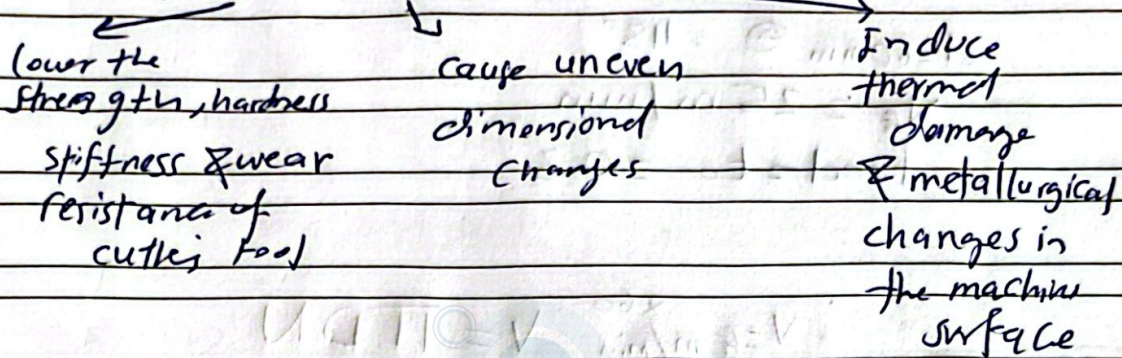 lower the
strength, hardness
stiffness & wear
resistance of
cutting tool
cause uneven
dimensional
changes
Induce
thermal
damage
& metallurgical
changes in
the machine
surface